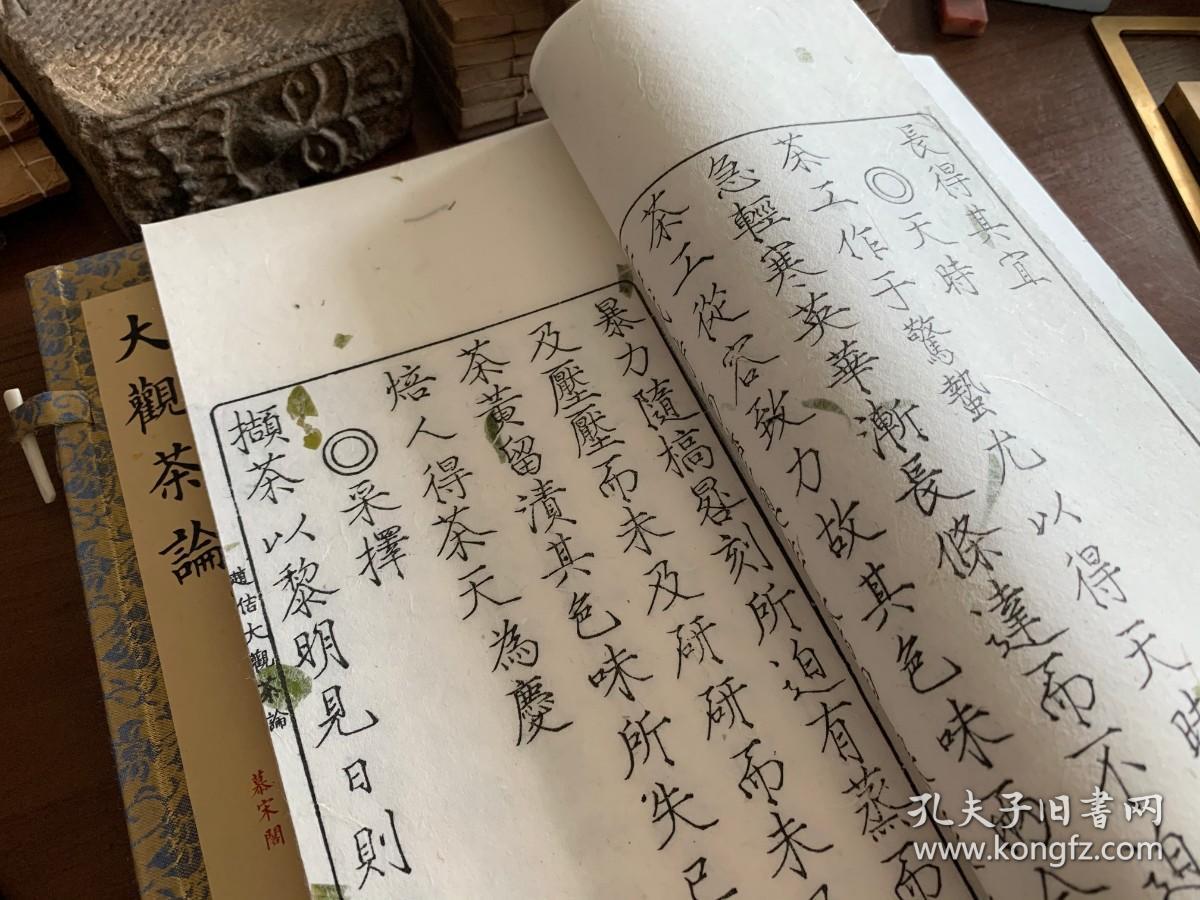 長得其宜
◎天時
茶工作于驚蟄尤以得天時
急輕寒英華漸長條達而不迫
茶工從容致力故其色味兩
暴力隨槁晷刻所迫有蒸而
及壓壓而未及研研而未
茶黃留漬其色味所失已
焙人得茶天為慶
◎采擇
擷茶以黎明見日則
趙佶大觀茶論
大觀茶論
慕宋閣
孔夫子旧書网
www.kongfz.com